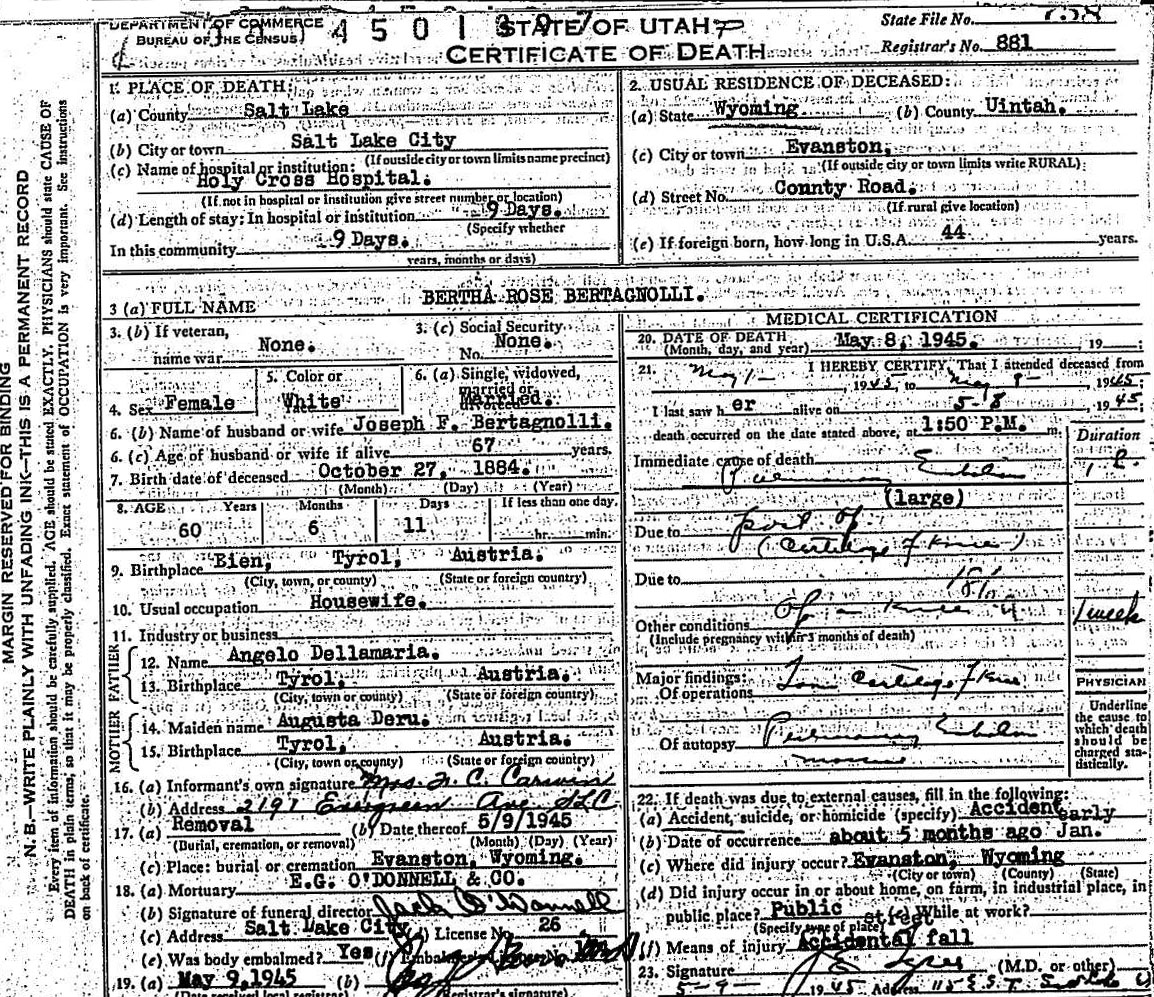 DEPARTMENT OF COMMERCE
BUREAU OF THE CENSUS
STATE OF UTAH
CERTIFICATE OF DEATH
State File No. 758
Registrar's No. 881
MARGIN RESERVED FOR BINDING
N. B.—WRITE PLAINLY WITH UNFADING INK—THIS IS A PERMANENT RECORD
Every item of information should be carefully supplied. AGE should be stated EXACTLY. PHYSICIANS should state CAUSE OF
DEATH in plain terms, so that it may be properly classified. Exact statement of OCCUPATION is very important. See instructions
on back of certificate.
1. PLACE OF DEATH:
(a) County Salt Lake
(b) City or town Salt Lake City
(If outside city or town limits name precinct)
(c) Name of hospital or institution:
Holy Cross Hospital.
(If not in hospital or institution give street number or location)
(d) Length of stay: In hospital or institution 9 Days.
(Specify whether
In this community 9 Days.
years, months or days)
2. USUAL RESIDENCE OF DECEASED:
(a) State Wyoming (b) County Uintah.
(c) City or town Evanston.
(If outside city or town limits write RURAL)
(d) Street No. County Road.
(If rural give location)
(e) If foreign born, how long in U.S.A. 44 years.
3 (a) FULL NAME BERTHA ROSE BERTAGNOLLI.
3. (b) If veteran, name war None.
3. (c) Social Security No. None.
4. Sex Female
5. Color or race White
6. (a) Single, widowed, married or divorced Married.
6. (b) Name of husband or wife Joseph F. Bertagnolli.
6. (c) Age of husband or wife if alive 67 years.
7. Birth date of deceased October 27, 1884.
(Month) (Day) (Year)
8. AGE Years Months Days If less than one day.
60 6 11 hr. min.
9. Birthplace Bien, Tyrol, Austria.
(City, town, or county) (State or foreign country)
10. Usual occupation Housewife.
11. Industry or business
FATHER
12. Name Angelo Dellamaria.
13. Birthplace Tyrol, Austria.
(City, town or county) (State or foreign country)
MOTHER
14. Maiden name Augusta Deru.
15. Birthplace Tyrol, Austria.
(City, town or county) (State or foreign country)
16. (a) Informant's own signature Mrs. F. C. Carwin
(b) Address 2191 Evergreen Ave SLC
17. (a) Removal (b) Date thereof 5/9/1945
(Burial, cremation, or removal) (Month) (Day) (Year)
(c) Place: burial or cremation Evanston, Wyoming.
18. (a) Mortuary E.G. O'DONNELL & CO.
(b) Signature of funeral director Jack O'Donnell
(c) Address Salt Lake City (d) License No. 26
(e) Was body embalmed? Yes (f)
19. (a) May 9, 1945 (b)
(Date received local registrar) (Registrar's signature)
MEDICAL CERTIFICATION
20. DATE OF DEATH May 8, 1945. 19
(Month, day, and year)
21. I HEREBY CERTIFY, That I attended deceased from
May 1- , 1945 to May 8- , 1945;
I last saw her alive on 5-8 , 1945
death occurred on the date stated above, at 1:50 P.M. m.
Duration
Immediate cause of death
Pulmonary Embolism
(large)
Due to post op
(Cartilage of Knee)
Due to
Other conditions Op on knee
1 week
(Include pregnancy within 3 months of death)
Major findings:
Of operations Torn Cartilage of Knee
Of autopsy Pulmonary Embolism
massive
PHYSICIAN
Underline
the cause to
which death
should be
charged sta-
tistically.
22. If death was due to external causes, fill in the following:
(a) Accident, suicide, or homicide (specify) Accident
(b) Date of occurrence about 5 months ago early Jan.
(c) Where did injury occur? Evanston, Wyoming
(City or town) (County) (State)
(d) Did injury occur in or about home, on farm, in industrial place, in
public place? Public street (e) While at work?
(Specify type of place)
(f) Means of injury Accidental fall
23. Signature (M.D. or other)
5-9- 1945 Address 115 E. S. T.